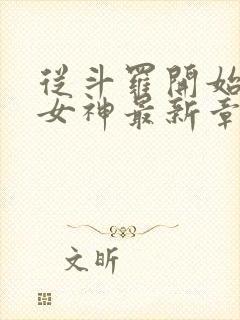 從斗羅開始
女神最新章
文昕